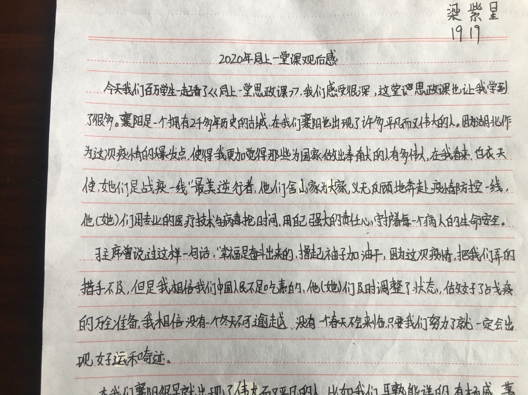 梁紫星
1919
2020年同上一堂课观后感
今天我们百万学生一起看了《同上一堂思政课》,我们感受很深,这堂思政课也让我学到
了很多。襄阳是一个拥有2千多年历史的古城,在我们襄阳也出现了许多平凡而又伟大的人。因为湖北作
为这次疫情的爆发点,使得我更加觉得那些为国家做出奉献的人有多伟大,在我看来,白衣天
使,她们是战疫一线"最美逆行者,他们舍小家为大家,义无反顾地奔赴疫情防控一线,
他(她)们用专业的医疗技术与病毒抢时间,用自己强大的责任心,守护着每一个病人的生命安全。
习主席曾说过这样一句话,"幸福是奋斗出来的,撸起袖子加油干,因为这次疫情,把我们弄的
措手不及,但是我相信我们中国人民不是吃素的,他(她)们及时调整了状态,估好了占战疫
的万全准备,我相信没有一个冬天不可逾越,没有一个春天不会来临,只要我们努力了就一定会出
现好运和奇迹。